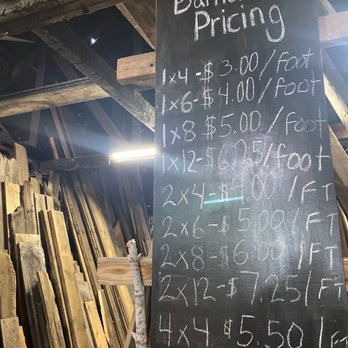 Pricing
1x4-$3.00/foot
1x6-$4.00/foot
1x8-$5.00/foot
1x12-$6.25/foot
2x4-$4.00/FT
2x6-$5.00/FT
2x8-$6.00/FT
2x12-$7.25/FT
4x4 $5.50/FT